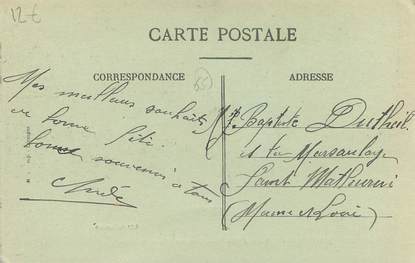 12€
CARTE POSTALE
CORRESPONDANCE
ADRESSE
Mes meilleurs souhaits
et bonne fête
bons souvenirs à tous
André
Baptiste Dutheil
Saint Mathurin
(Maine et Loire)